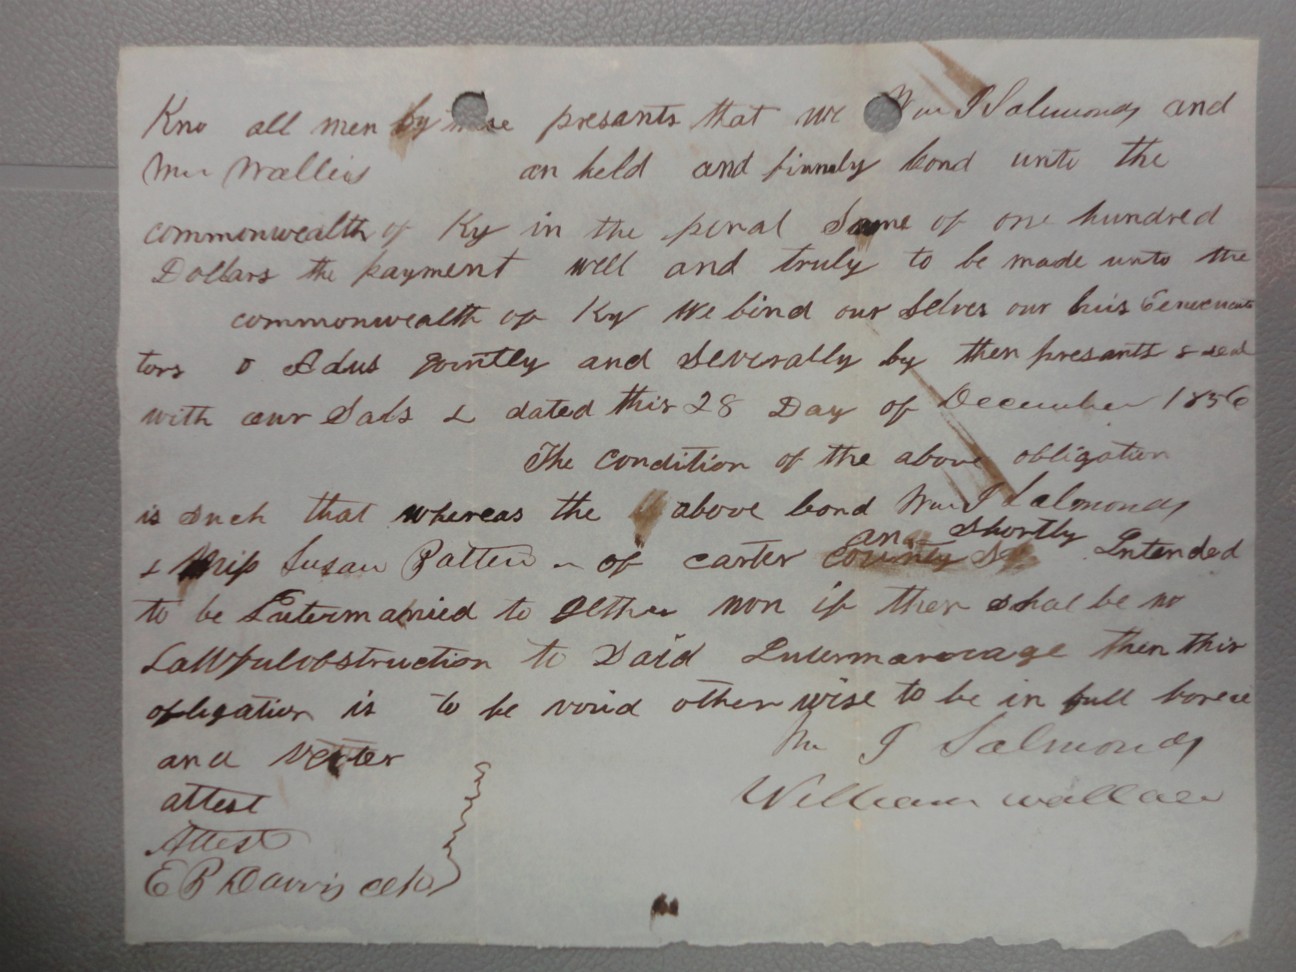 Kno all men by these presants that we Wm J Salmonds and
Wm Wallis an held and firmely bond unto the
commonwealth of Ky in the penal Some of one hundred
Dollars the payment well and truly to be made unto the
commonwealth of Ky We bind our Selves our
tors & Adms jointly and Severally by then presants & seal
with our Sals & dated this 28 Day of December 1856
The condition of the above obligation
is such that whereas the above bond Wm J Salmonds
an Shortly
& Miss Susan Patten of carter county Intended
to be Intermarried to gether non if ther shal be no
Lawful obstruction to Said then this
obligation is to be void other wise to be in full
and
Wm J Salmonds
attest
William Wallace
Attest
E P Davis clk